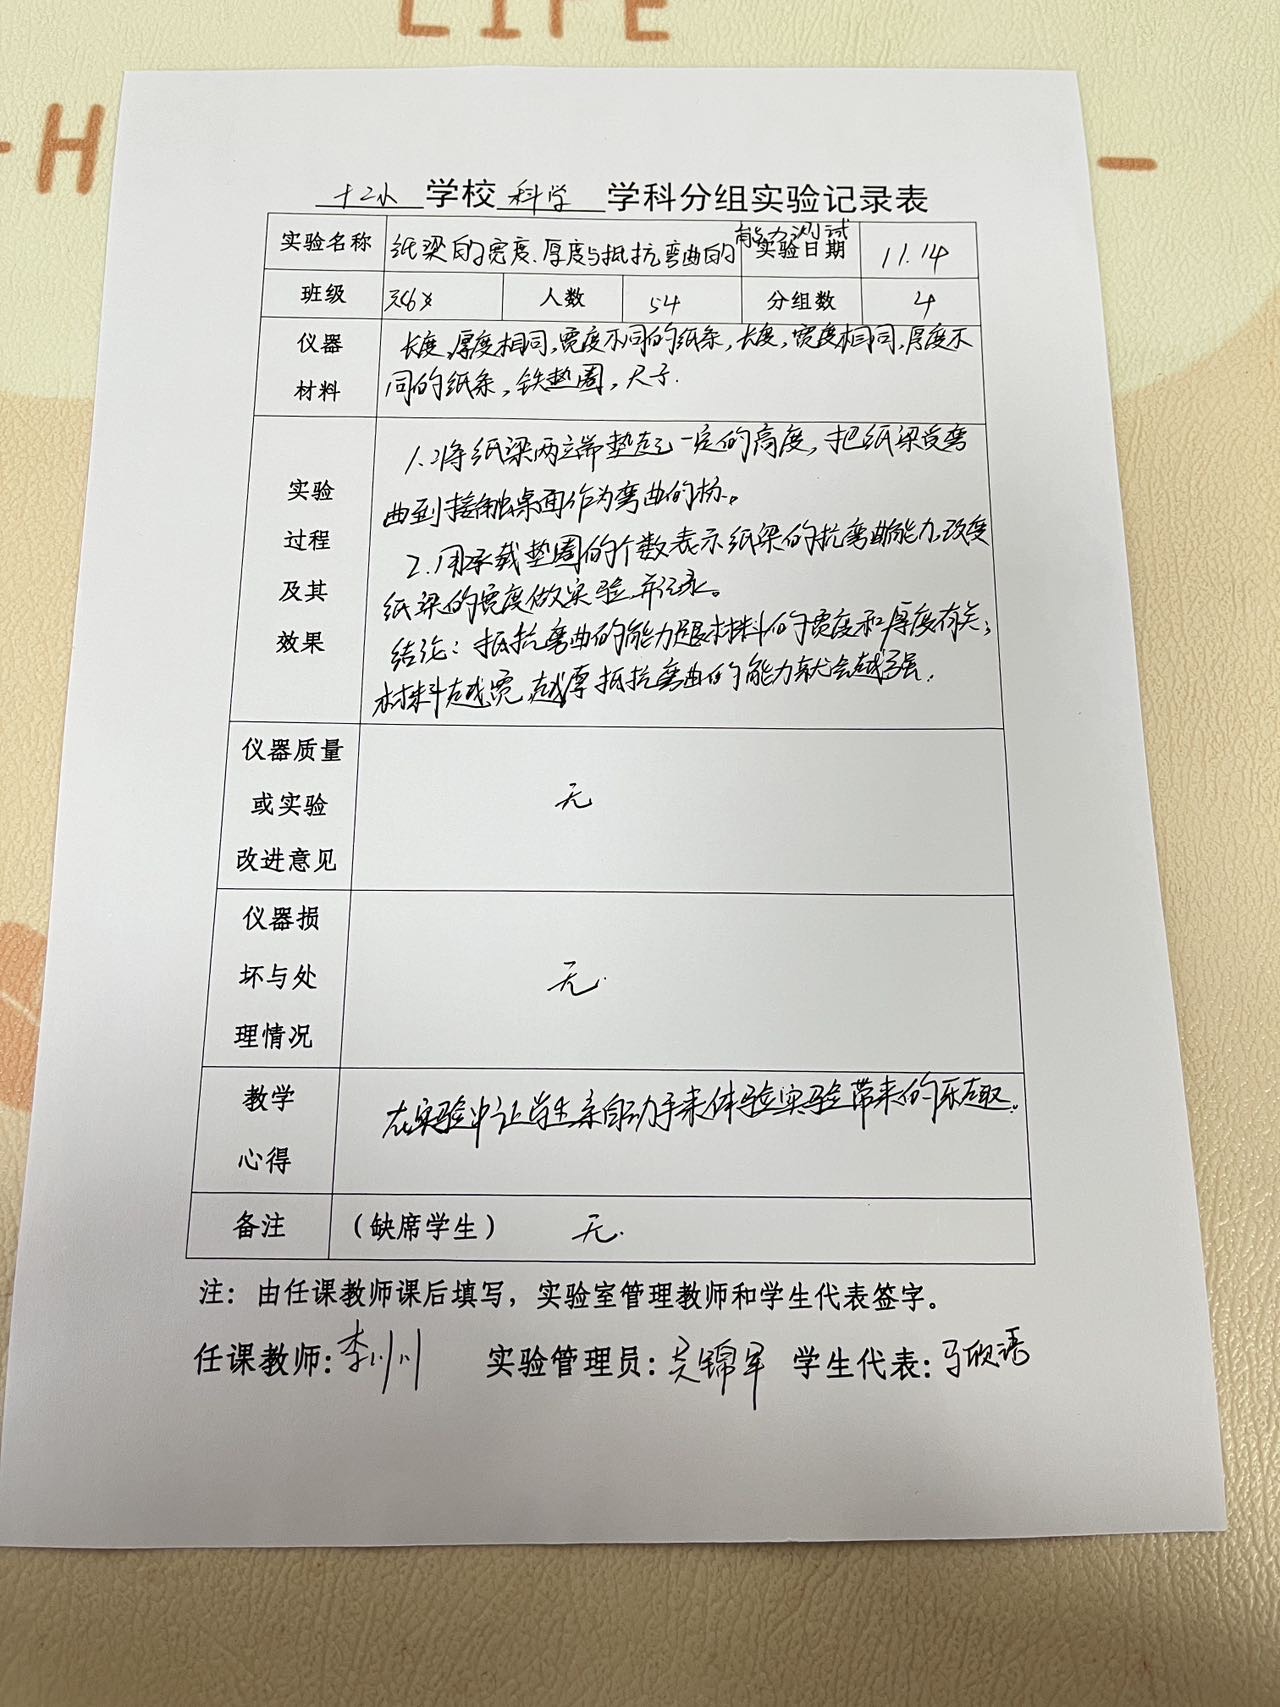 LIFE
-H
十二小 学校 科学 学科分组实验记录表
实验名称 纸梁的宽度、厚度与抵抗弯曲的能力测试 实验日期 11.14
班级 人数 54 分组数 4
仪器材料
长度,厚度相同,宽度不同的纸条,长度,宽度相同,厚度不
同的纸条,铁垫圈,尺子.
实验过程及其效果
1.将纸梁两立端垫起一定的高度,把纸梁受弯
曲到接触桌面作为弯曲的标。
2.用承载垫圈的个数表示纸梁的抗弯曲能力,改变
纸梁的宽度做实验,并记录。
结论:抵抗弯曲的能力跟材料的宽度和厚度有关;
材料越宽,越厚抵抗弯曲的能力就会越强.
仪器质量或实验改进意见
无
仪器损坏与处理情况
无.
教学心得
在实验中让学生亲自动手来体验实验带来的乐趣。
备注 (缺席学生) 无.
注:由任课教师课后填写,实验室管理教师和学生代表签字。
任课教师:李川川 实验管理员:吴锦军 学生代表:马欣语